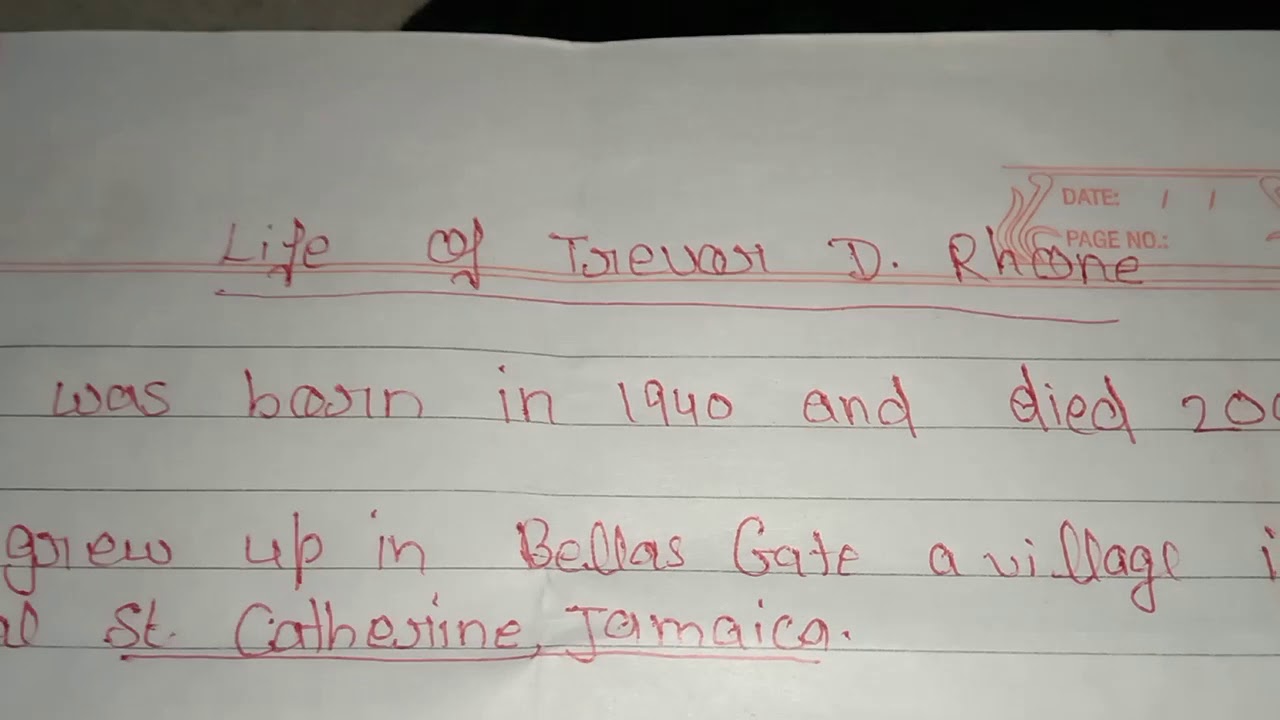 DATE: / /
PAGE NO.:
Life of Trevor D. Rhone
was born in 1940 and died
grew up in Bellas Gate a village
St. Catherine, Jamaica.